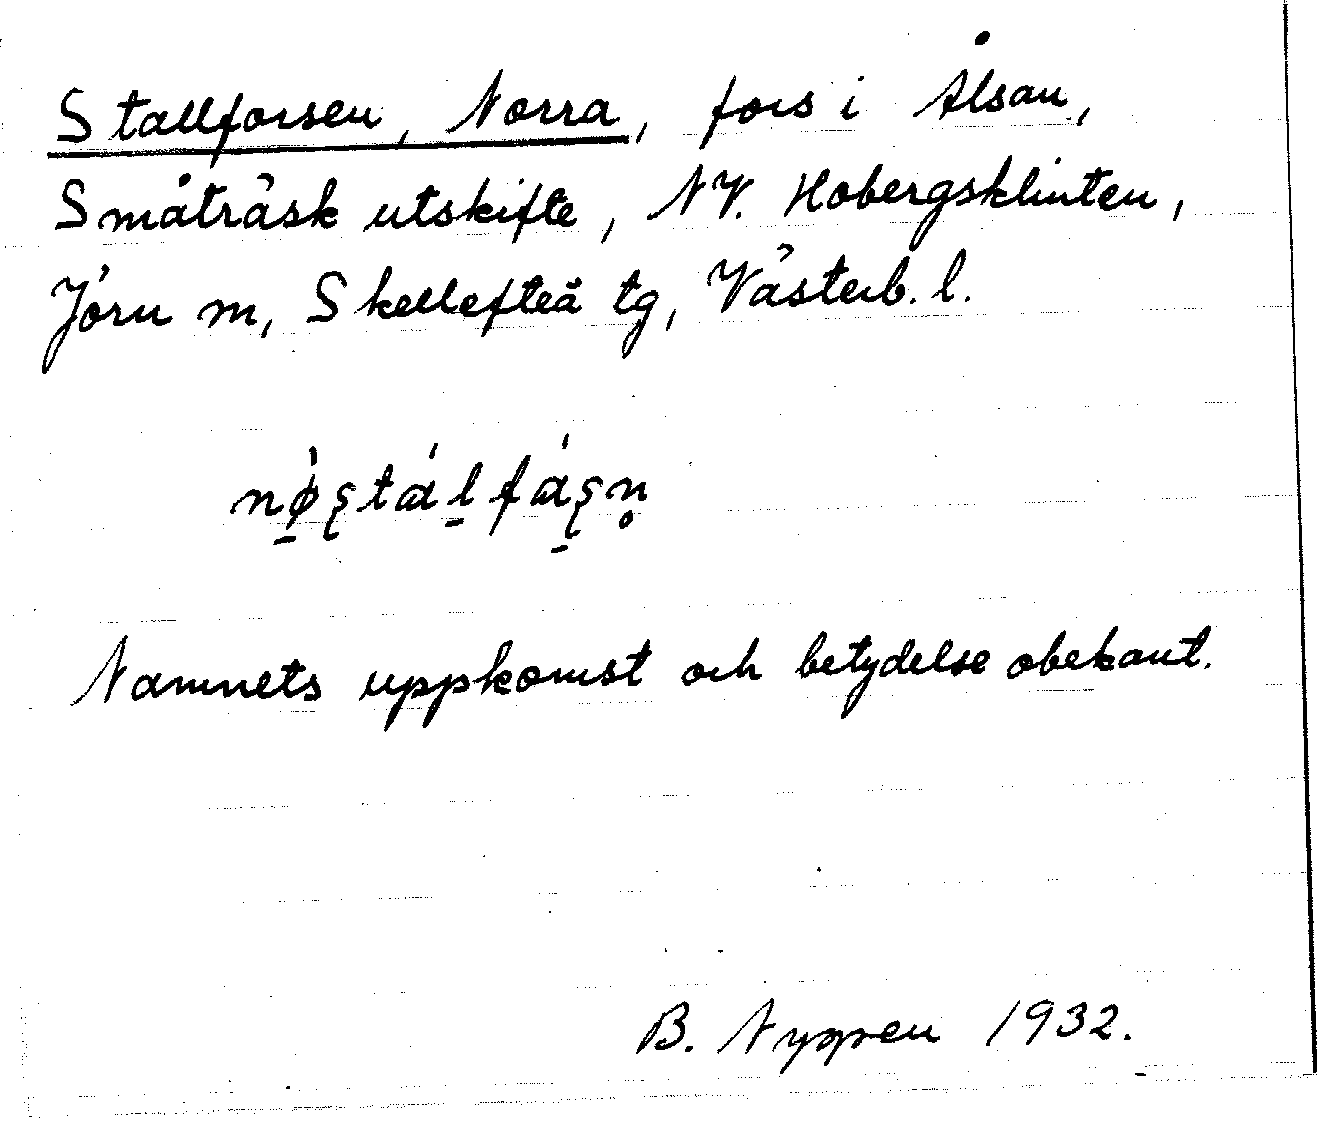 Stallforsen, Norra, fors i Ålsån,
Småträsk utskifte, NV. Hobergsklinten,
Jörn m, Skellefteå tg, Västerb. l.
nǿ̱ʂtáḻfá̱ʂn̥
Namnets uppkomst och betydelse obekant.
B. Nygren 1932.